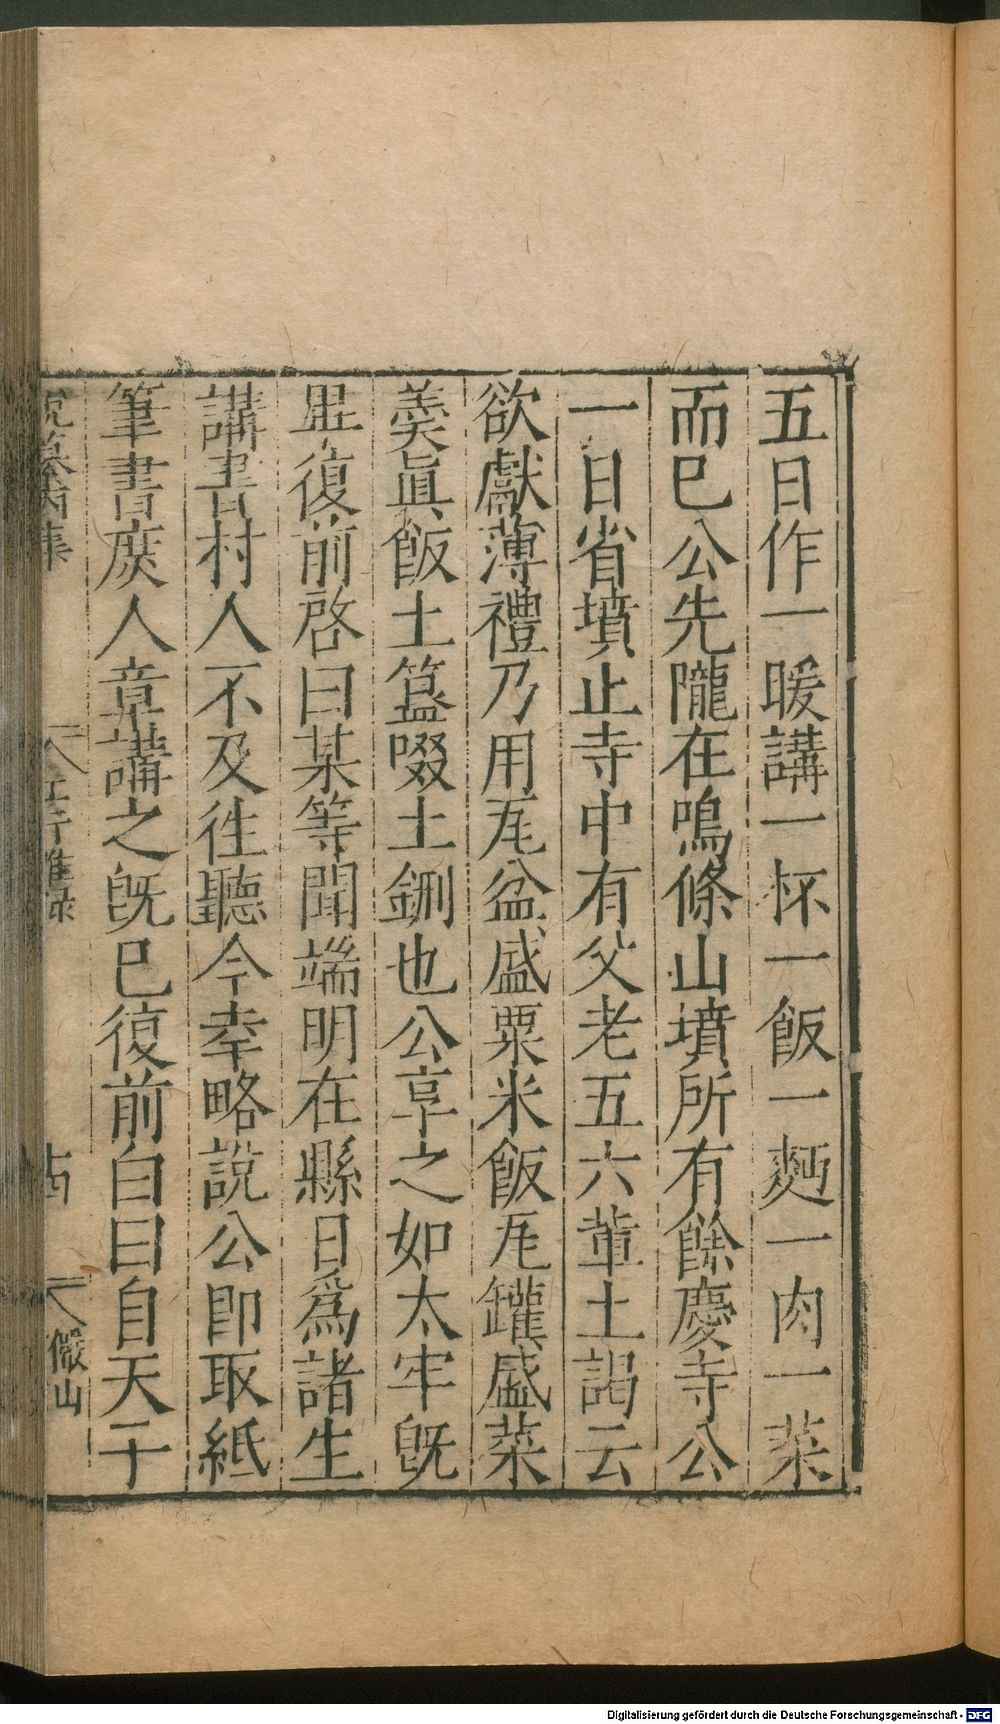 五日作一暖講一杯一飯一麪一肉一菜
而已公先隴在鳴條山墳所有餘慶寺公
一日省墳止寺中有父老五六輩上謁云
欲獻薄禮乃用瓦盆盛粟米飯瓦罐盛菜
羹眞飯土簋啜土鉶也公享之如太牢既
畢復前啓曰某等聞端明在縣日爲諸生
講書村人不及徃聽今幸略説公卽取紙
筆書庻人章講之既已復前白曰自天子
儼山
Digitalisierung gefördert durch die Deutsche Forschungsgemeinschaft - DFG